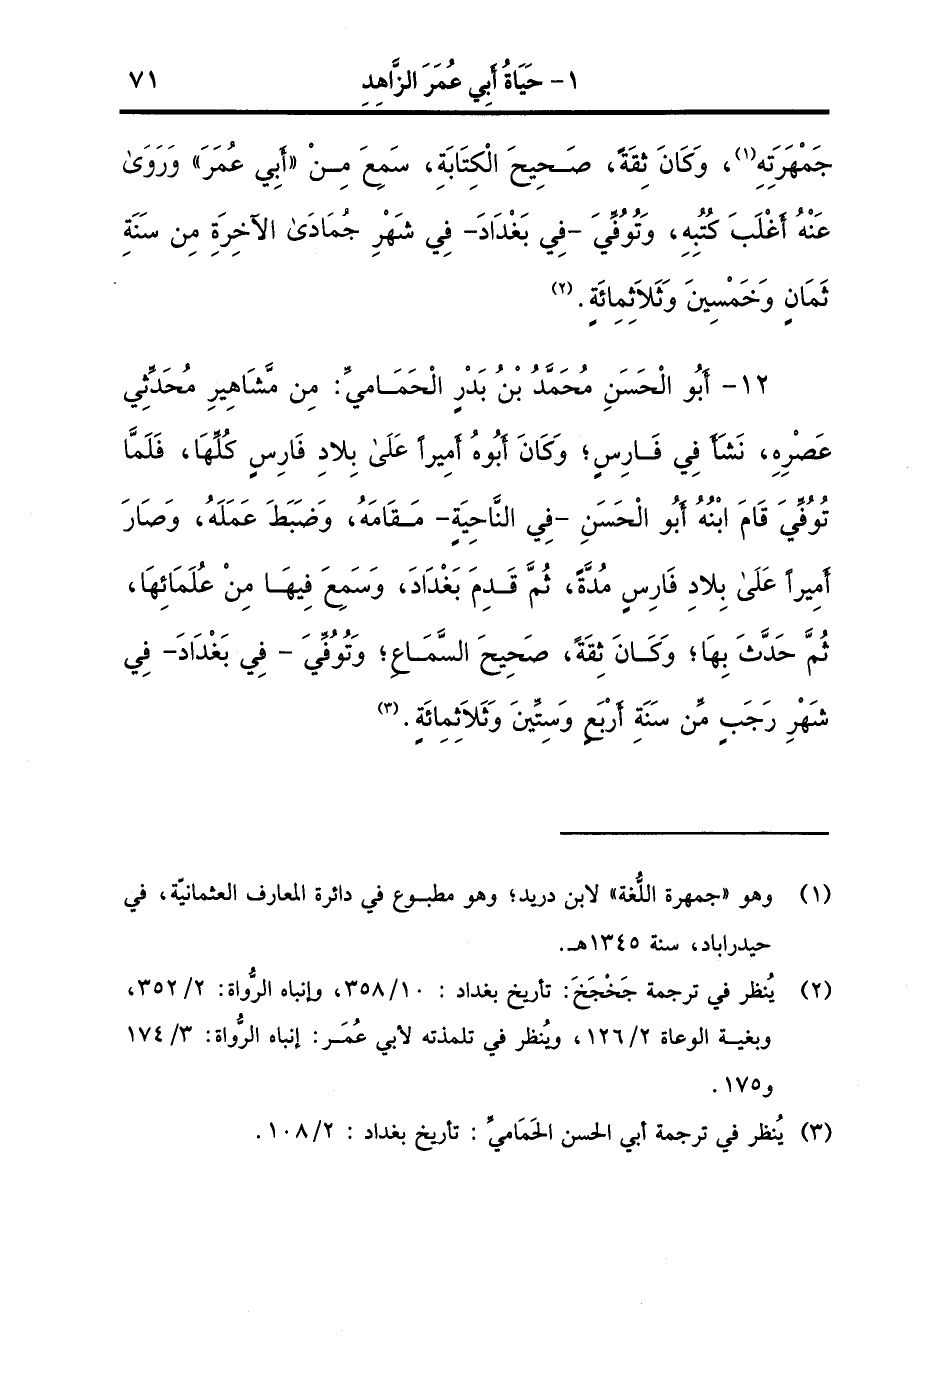 ١- حَيَاةُ أَبِي عُمَرَ الزَّاهِدِ ٧١
جَمْهَرَتِهِ(١)، وَكَانَ ثِقَةً، صَحِيحَ الْكِتَابَةِ، سَمِعَ مِنْ «أَبِي عُمَرَ» وَرَوَىٰ
عَنْهُ أَغْلَبَ كُتُبِهِ، وَتُوُفِّيَ -فِي بَغْدَادَ- فِي شَهْرِ جُمَادَىٰ الآخِرَةِ مِن سَنَةِ
ثَمَانٍ وَخَمْسِينَ وَثَلاَثِمِائَةٍ.(٢)
١٢- أَبُو الْحَسَنِ مُحَمَّدُ بْنُ بَدْرٍ الْحَمَامِيُّ: مِن مَّشَاهِيرِ مُحَدِّثِي
عَصْرِهِ، نَشَأَ فِي فَارِسٍ؛ وَكَانَ أَبُوهُ أَمِيراً عَلَىٰ بِلادِ فَارِسٍ كُلِّهَا، فَلَمَّا
تُوُفِّيَ قَامَ ابْنُهُ أَبُو الْحَسَنِ -فِي النَّاحِيَةِ- مَقَامَهُ، وَضَبَطَ عَمَلَهُ، وَصَارَ
أَمِيراً عَلَىٰ بِلادِ فَارِسٍ مُدَّةً، ثُمَّ قَدِمَ بَغْدَادَ، وَسَمِعَ فِيهَا مِنْ عُلَمَائِهَا،
ثُمَّ حَدَّثَ بِهَا؛ وَكَانَ ثِقَةً، صَحِيحَ السَّمَاعِ؛ وَتُوُفِّيَ - فِي بَغْدَادَ- فِي
شَهْرِ رَجَبٍ مِّن سَنَةِ أَرْبَعٍ وَسِتِّينَ وَثَلاَثِمِائَةٍ.(٣)
(١) وهو «جمهرة اللُّغة» لابن دريد؛ وهو مطبوع في دائرة المعارف العثمانيّة، في
حيدراباد، سنة ١٣٤٥هـ.
(٢) يُنظر في ترجمة جَخْجَخَ: تأريخ بغداد : ٣٥٨/١٠، وإنباه الرُّواة: ٣٥٢/٢،
وبغية الوعاة ١٢٦/٢، ويُنظر في تلمذته لأبي عُمَر: إنباه الرُّواة: ١٧٤/٣
و١٧٥.
(٣) يُنظر في ترجمة أبي الحسن الحَمَاميِّ : تأريخ بغداد : ١٠٨/٢.